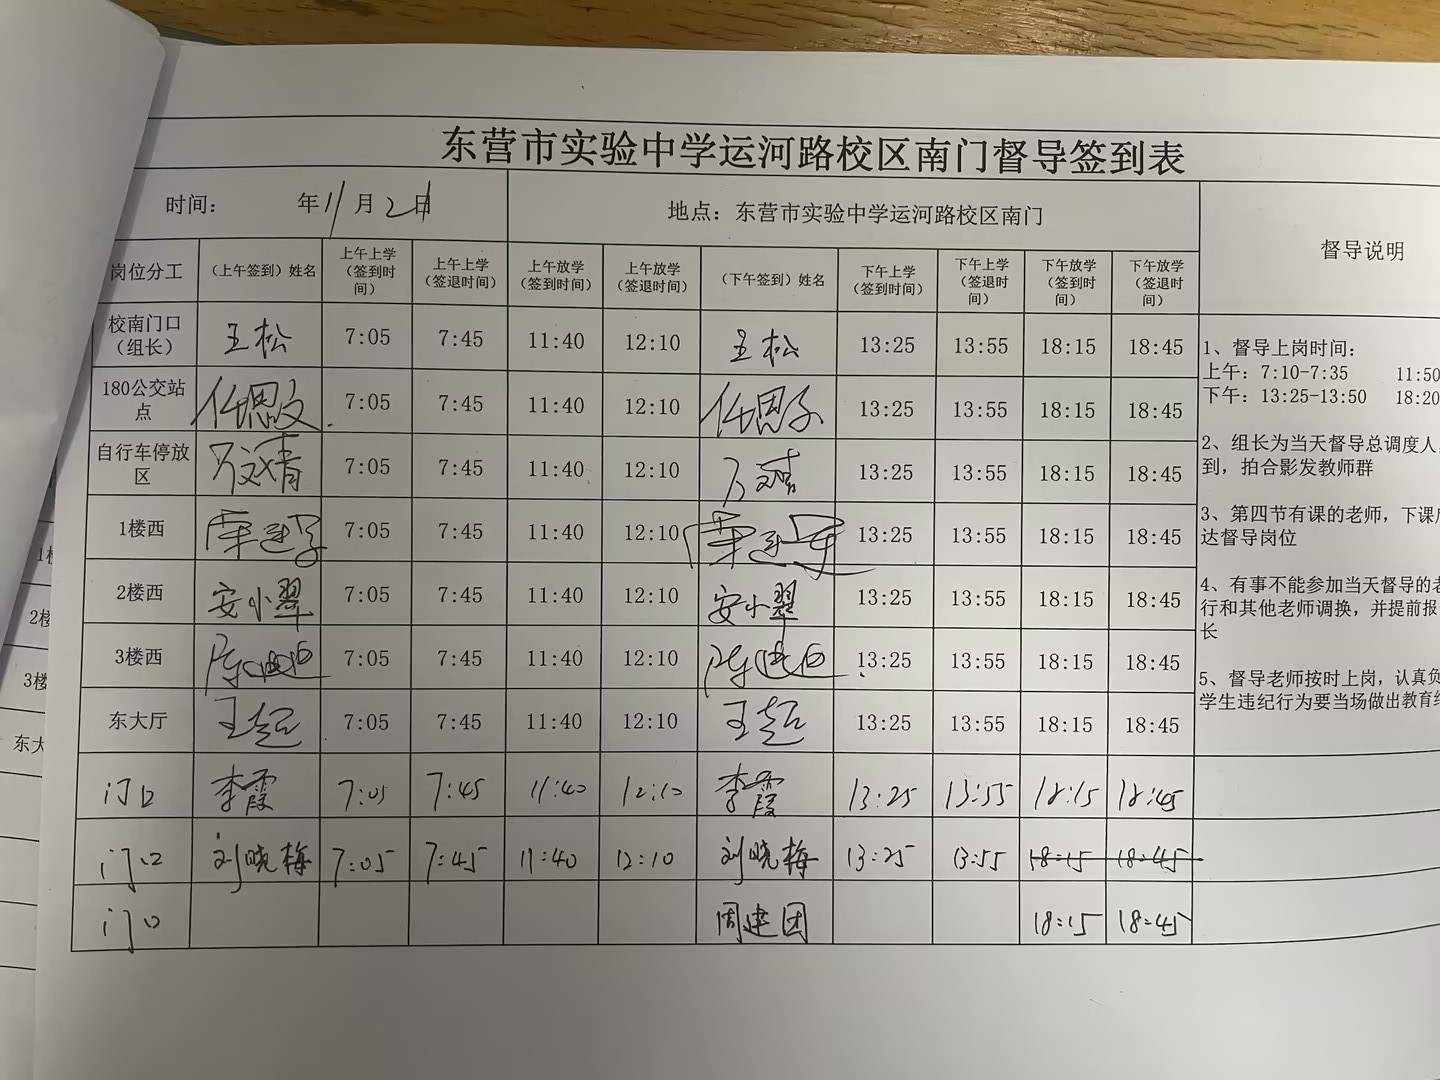 东营市实验中学运河路校区南门督导签到表
时间： 年11月2日 地点：东营市实验中学运河路校区南门
督导说明
岗位分工 （上午签到）姓名 上午上学（签到时间） 上午上学（签退时间） 上午放学（签到时间） 上午放学（签退时间） （下午签到）姓名 下午上学（签到时间） 下午上学（签退时间） 下午放学（签到时间） 下午放学（签退时间）
校南门口（组长） 王松 7:05 7:45 11:40 12:10 王松 13:25 13:55 18:15 18:45
180公交站点 7:05 7:45 11:40 12:10 13:25 13:55 18:15 18:45
自行车停放区 7:05 7:45 11:40 12:10 13:25 13:55 18:15 18:45
1楼西 7:05 7:45 11:40 12:10 13:25 13:55 18:15 18:45
2楼西 安小翠 7:05 7:45 11:40 12:10 安小翠 13:25 13:55 18:15 18:45
3楼西 7:05 7:45 11:40 12:10 13:25 13:55 18:15 18:45
东大厅 王超 7:05 7:45 11:40 12:10 王超 13:25 13:55 18:15 18:45
门口 李霞 7:05 7:45 11:40 12:10 李霞 13:25 13:55 18:15 18:45
门口 刘晓梅 7:05 7:45 11:40 12:10 刘晓梅 13:25 13:55 18:15 18:45
门口 周建团 18:15 18:45
1、督导上岗时间：
上午：7:10-7:35 11:50
下午：13:25-13:50 18:20
2、组长为当天督导总调度人
到，拍合影发教师群
3、第四节有课的老师，下课
达督导岗位
4、有事不能参加当天督导的老
行和其他老师调换，并提前报
长
5、督导老师按时上岗，认真负
学生违纪行为要当场做出教育
2楼
3楼
东大